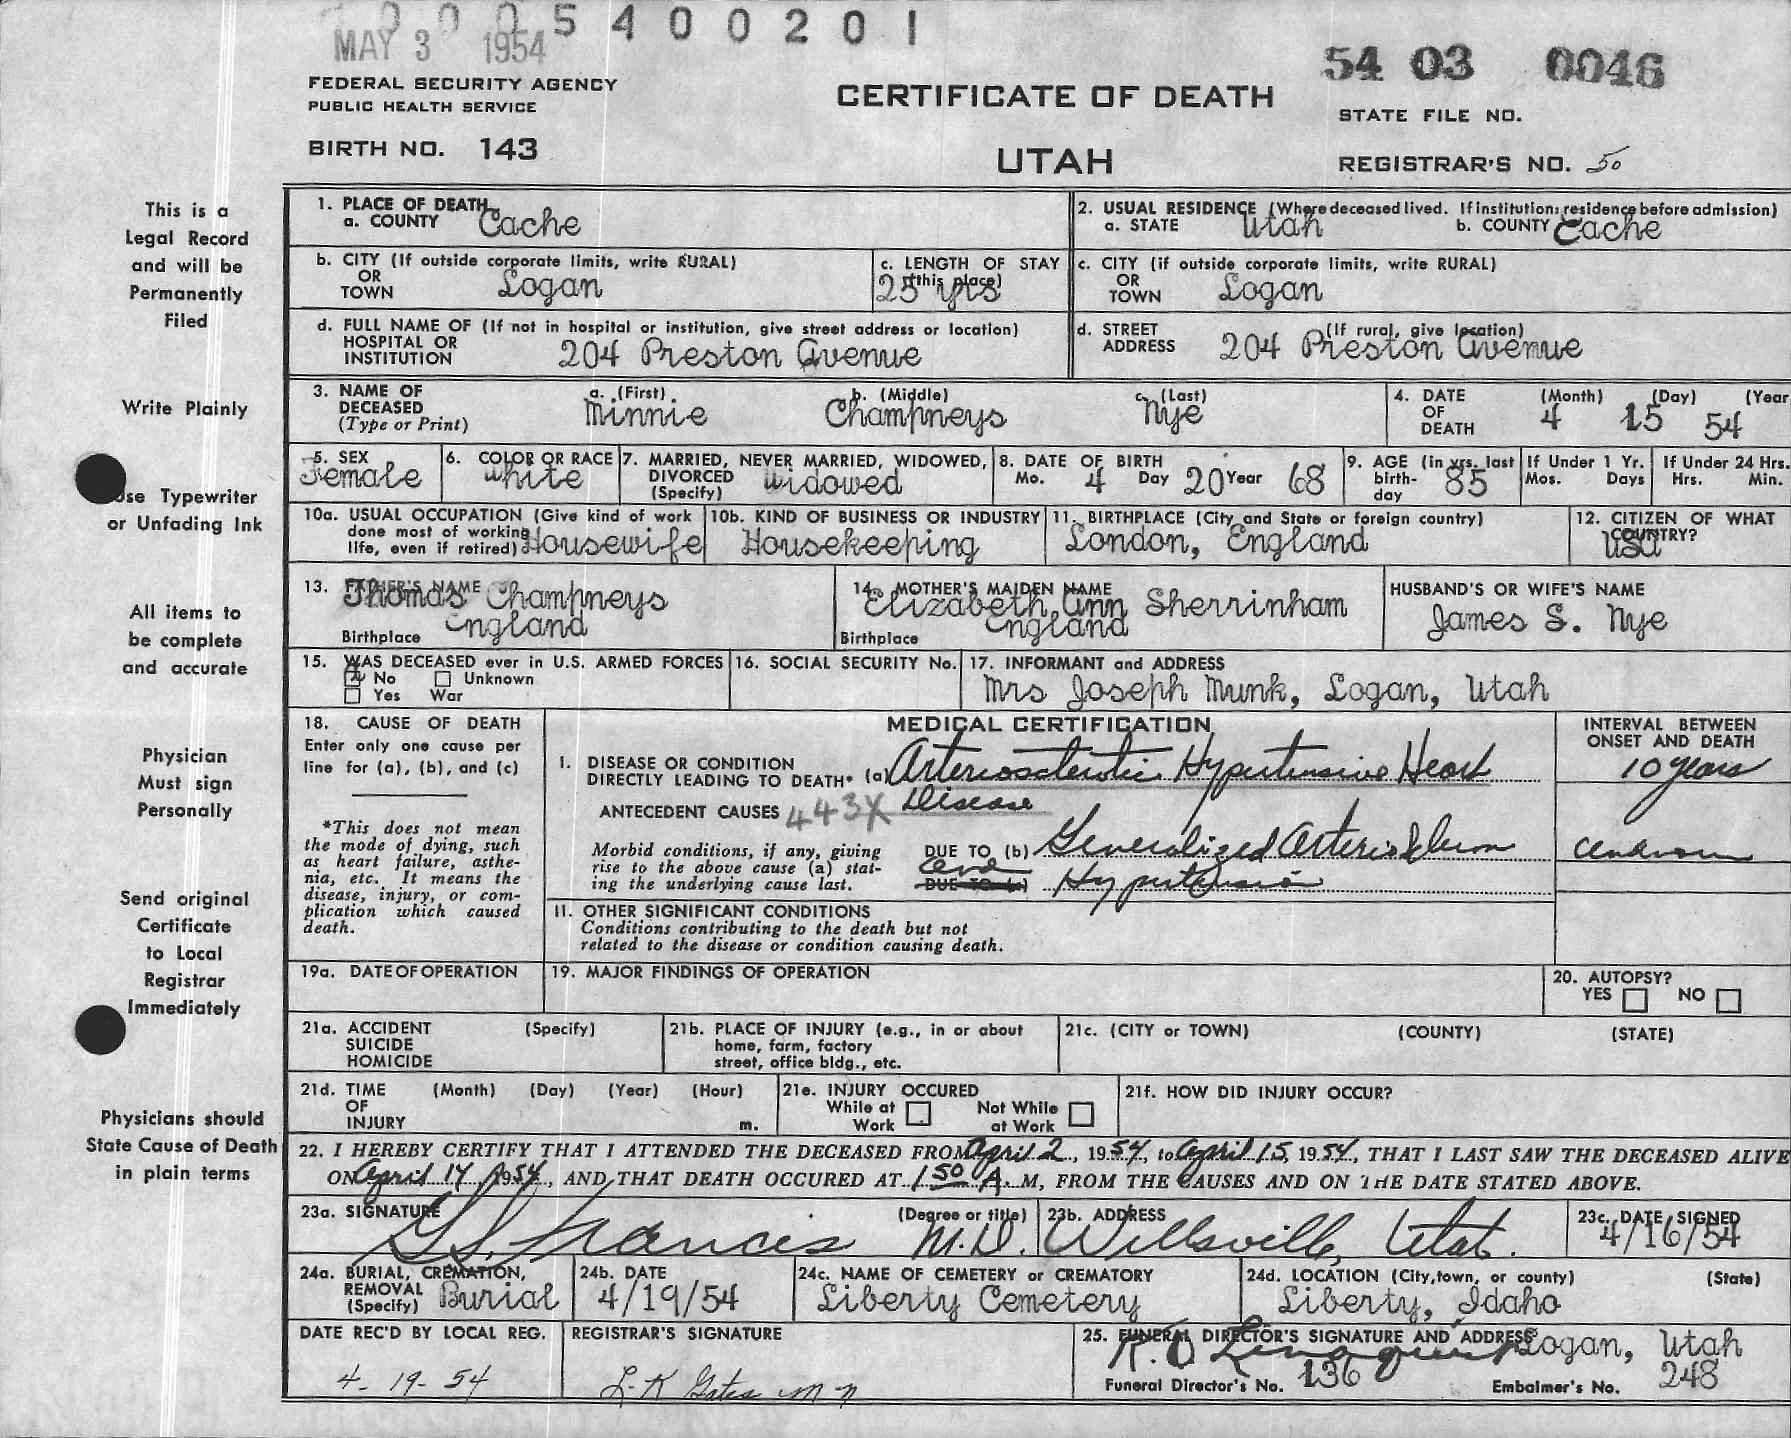 0005400201
MAY 3 1954
54 03 0046
FEDERAL SECURITY AGENCY
PUBLIC HEALTH SERVICE
CERTIFICATE OF DEATH
STATE FILE NO.
BIRTH NO. 143
UTAH
REGISTRAR'S NO. 50
This is a
Legal Record
and will be
Permanently
Filed
Write Plainly
Use Typewriter
or Unfading Ink
All items to
be complete
and accurate
Physician
Must sign
Personally
Send original
Certificate
to Local
Registrar
Immediately
Physicians should
State Cause of Death
in plain terms
1. PLACE OF DEATH
a. COUNTY Cache
2. USUAL RESIDENCE (Where deceased lived. If institution: residence before admission)
a. STATE Utah b. COUNTY Cache
b. CITY (If outside corporate limits, write RURAL)
OR
TOWN Logan
c. LENGTH OF STAY
(this place)
25 yrs
c. CITY (if outside corporate limits, write RURAL)
OR
TOWN Logan
d. FULL NAME OF (If not in hospital or institution, give street address or location)
HOSPITAL OR
INSTITUTION 204 Preston Avenue
d. STREET (If rural, give location)
ADDRESS 204 Preston Avenue
3. NAME OF
DECEASED
(Type or Print)
a. (First) b. (Middle) c. (Last)
Minnie Champneys Nye
4. DATE
OF
DEATH
(Month) (Day) (Year
4 15 54
5. SEX
Female
6. COLOR OR RACE
White
7. MARRIED, NEVER MARRIED, WIDOWED,
DIVORCED
(Specify) Widowed
8. DATE OF BIRTH
Mo. 4 Day 20 Year 68
9. AGE (in yrs. last
birth-
day 85
If Under 1 Yr.
Mos. Days
If Under 24 Hrs.
Hrs. Min.
10a. USUAL OCCUPATION (Give kind of work
done most of working
life, even if retired) Housewife
10b. KIND OF BUSINESS OR INDUSTRY
Housekeeping
11. BIRTHPLACE (City and State or foreign country)
London, England
12. CITIZEN OF WHAT
COUNTRY?
USA
13. FATHER'S NAME
Thomas Champneys
Birthplace England
14. MOTHER'S MAIDEN NAME
Elizabeth Ann Sherrinham
Birthplace England
HUSBAND'S OR WIFE'S NAME
James S. Nye
15. WAS DECEASED ever in U.S. ARMED FORCES
No Unknown
Yes War
16. SOCIAL SECURITY No.
17. INFORMANT and ADDRESS
Mrs Joseph Munk, Logan, Utah
18. CAUSE OF DEATH
Enter only one cause per
line for (a), (b), and (c)
*This does not mean
the mode of dying, such
as heart failure, asthe-
nia, etc. It means the
disease, injury, or com-
plication which caused
death.
MEDICAL CERTIFICATION
I. DISEASE OR CONDITION
DIRECTLY LEADING TO DEATH* (a) Arteriosclerotic Hypertensive Heart
Disease
ANTECEDENT CAUSES 443X
Morbid conditions, if any, giving
rise to the above cause (a) stat-
ing the underlying cause last.
DUE TO (b) Generalized Arterio Scleros
and
DUE TO (c) Hypertension
INTERVAL BETWEEN
ONSET AND DEATH
10 years
unknown
II. OTHER SIGNIFICANT CONDITIONS
Conditions contributing to the death but not
related to the disease or condition causing death.
19a. DATE OF OPERATION
19. MAJOR FINDINGS OF OPERATION
20. AUTOPSY?
YES NO
21a. ACCIDENT (Specify)
SUICIDE
HOMICIDE
21b. PLACE OF INJURY (e.g., in or about
home, farm, factory
street, office bldg., etc.
21c. (CITY or TOWN) (COUNTY) (STATE)
21d. TIME (Month) (Day) (Year) (Hour)
OF
INJURY m.
21e. INJURY OCCURED
While at Not While
Work at Work
21f. HOW DID INJURY OCCUR?
22. I HEREBY CERTIFY THAT I ATTENDED THE DECEASED FROM April 2, 1954, to April 15, 1954, THAT I LAST SAW THE DECEASED ALIVE
ON April 14, 1954, AND THAT DEATH OCCURED AT 1 50 A. M, FROM THE CAUSES AND ON THE DATE STATED ABOVE.
23a. SIGNATURE (Degree or title)
G.S. Francis M.D.
23b. ADDRESS
Wellsville, Utah.
23c. DATE SIGNED
4/16/54
24a. BURIAL, CREMATION,
REMOVAL
(Specify) Burial
24b. DATE
4/19/54
24c. NAME OF CEMETERY or CREMATORY
Liberty Cemetery
24d. LOCATION (City, town, or county) (State)
Liberty, Idaho
DATE REC'D BY LOCAL REG.
4-19-54
REGISTRAR'S SIGNATURE
25. FUNERAL DIRECTOR'S SIGNATURE AND ADDRESS
Logan, Utah
Funeral Director's No. 136 Embalmer's No. 248